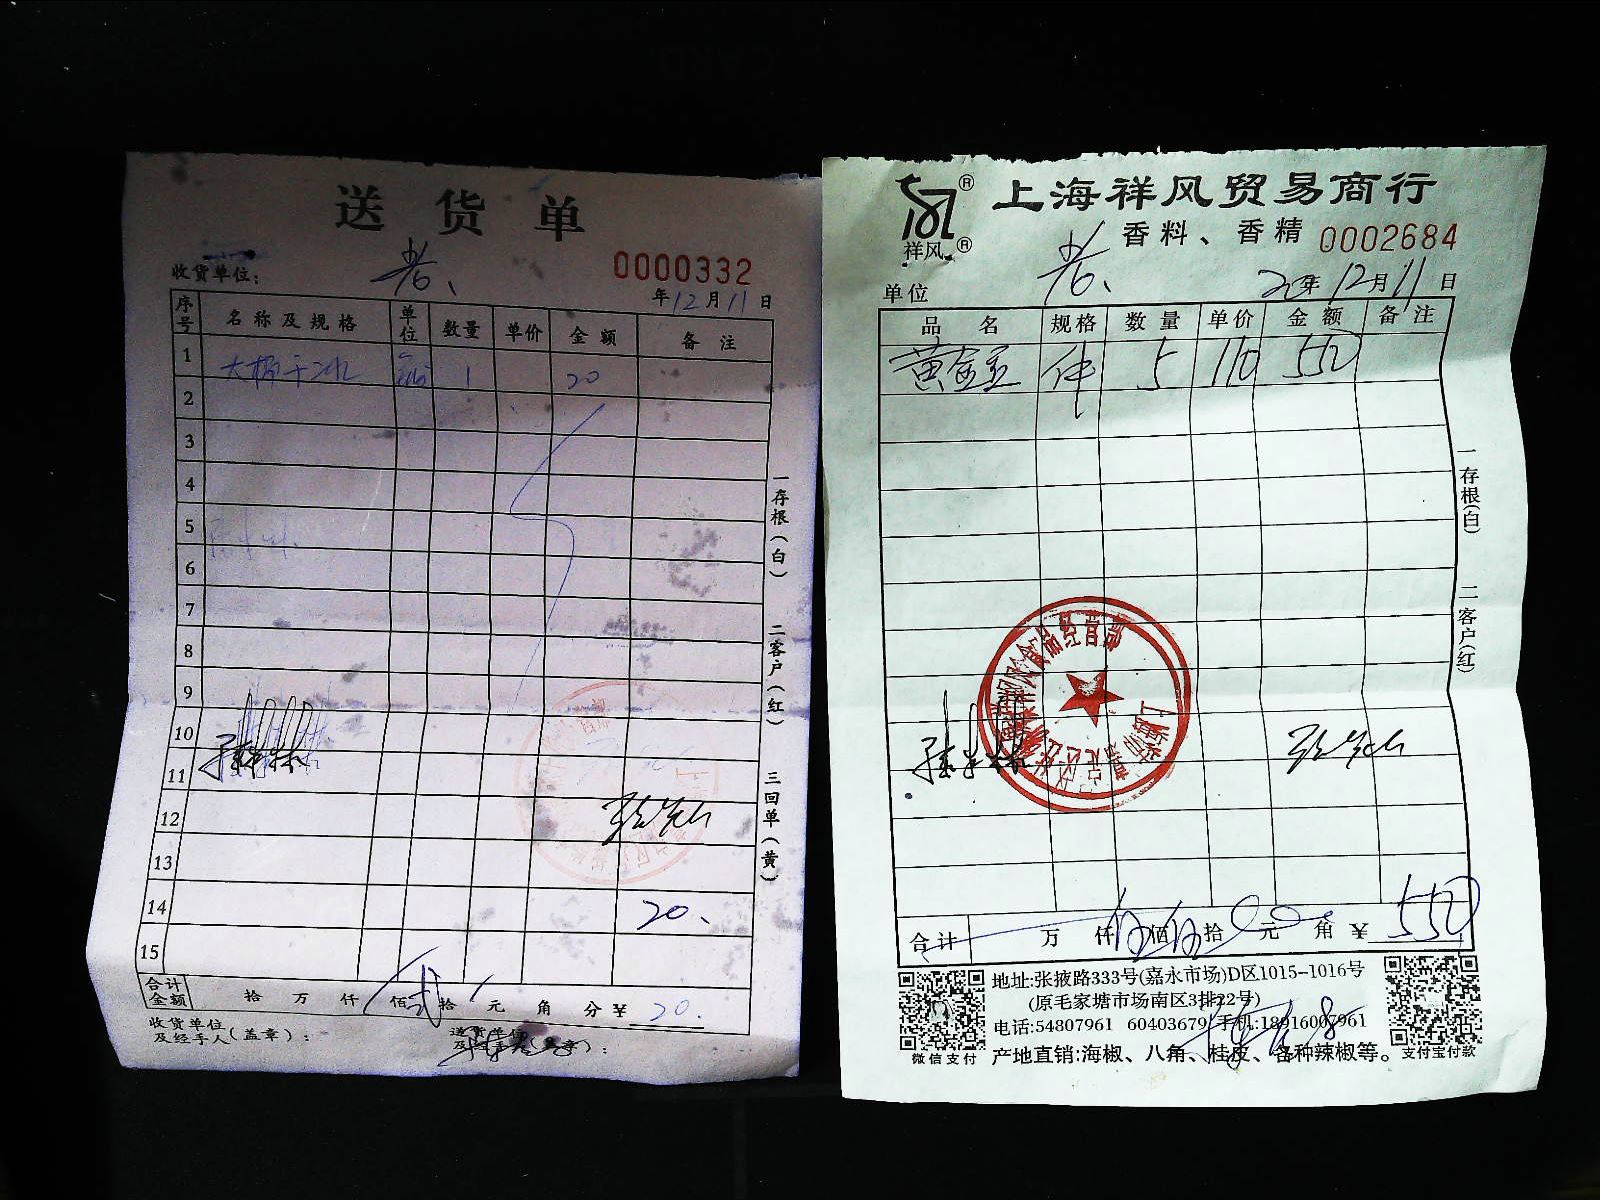 送货单
0000332
收货单位:
年12月11日
序号 名称及规格 单位 数量 单价 金额 备注
1 大桶干冰 1 20
2
3
4
5
6
7
8
9
10
11
12
13
14 20.
15
合计金额 拾 万 仟 佰 贰拾 元 角 分 ¥ 20.
收货单位及经手人(盖章):
送货单位及经手人(盖章):
一存根(白) 二客户(红) 三回单(黄)
祥风® ®
上海祥风贸易商行
香料、香精 0002684
单位
20年12月11日
品名 规格 数量 单价 金额 备注
件 5 110 550
一存根(白) 二客户(红)
合计 万 仟 伍佰伍拾 元 角 ¥ 550
地址:张掖路333号(嘉永市场)D区1015-1016号
(原毛家塘市场南区3排22号)
电话:54807961 60403679 手机:18916007961
产地直销:海椒、八角、桂皮、各种辣椒等。
微信支付
支付宝付款